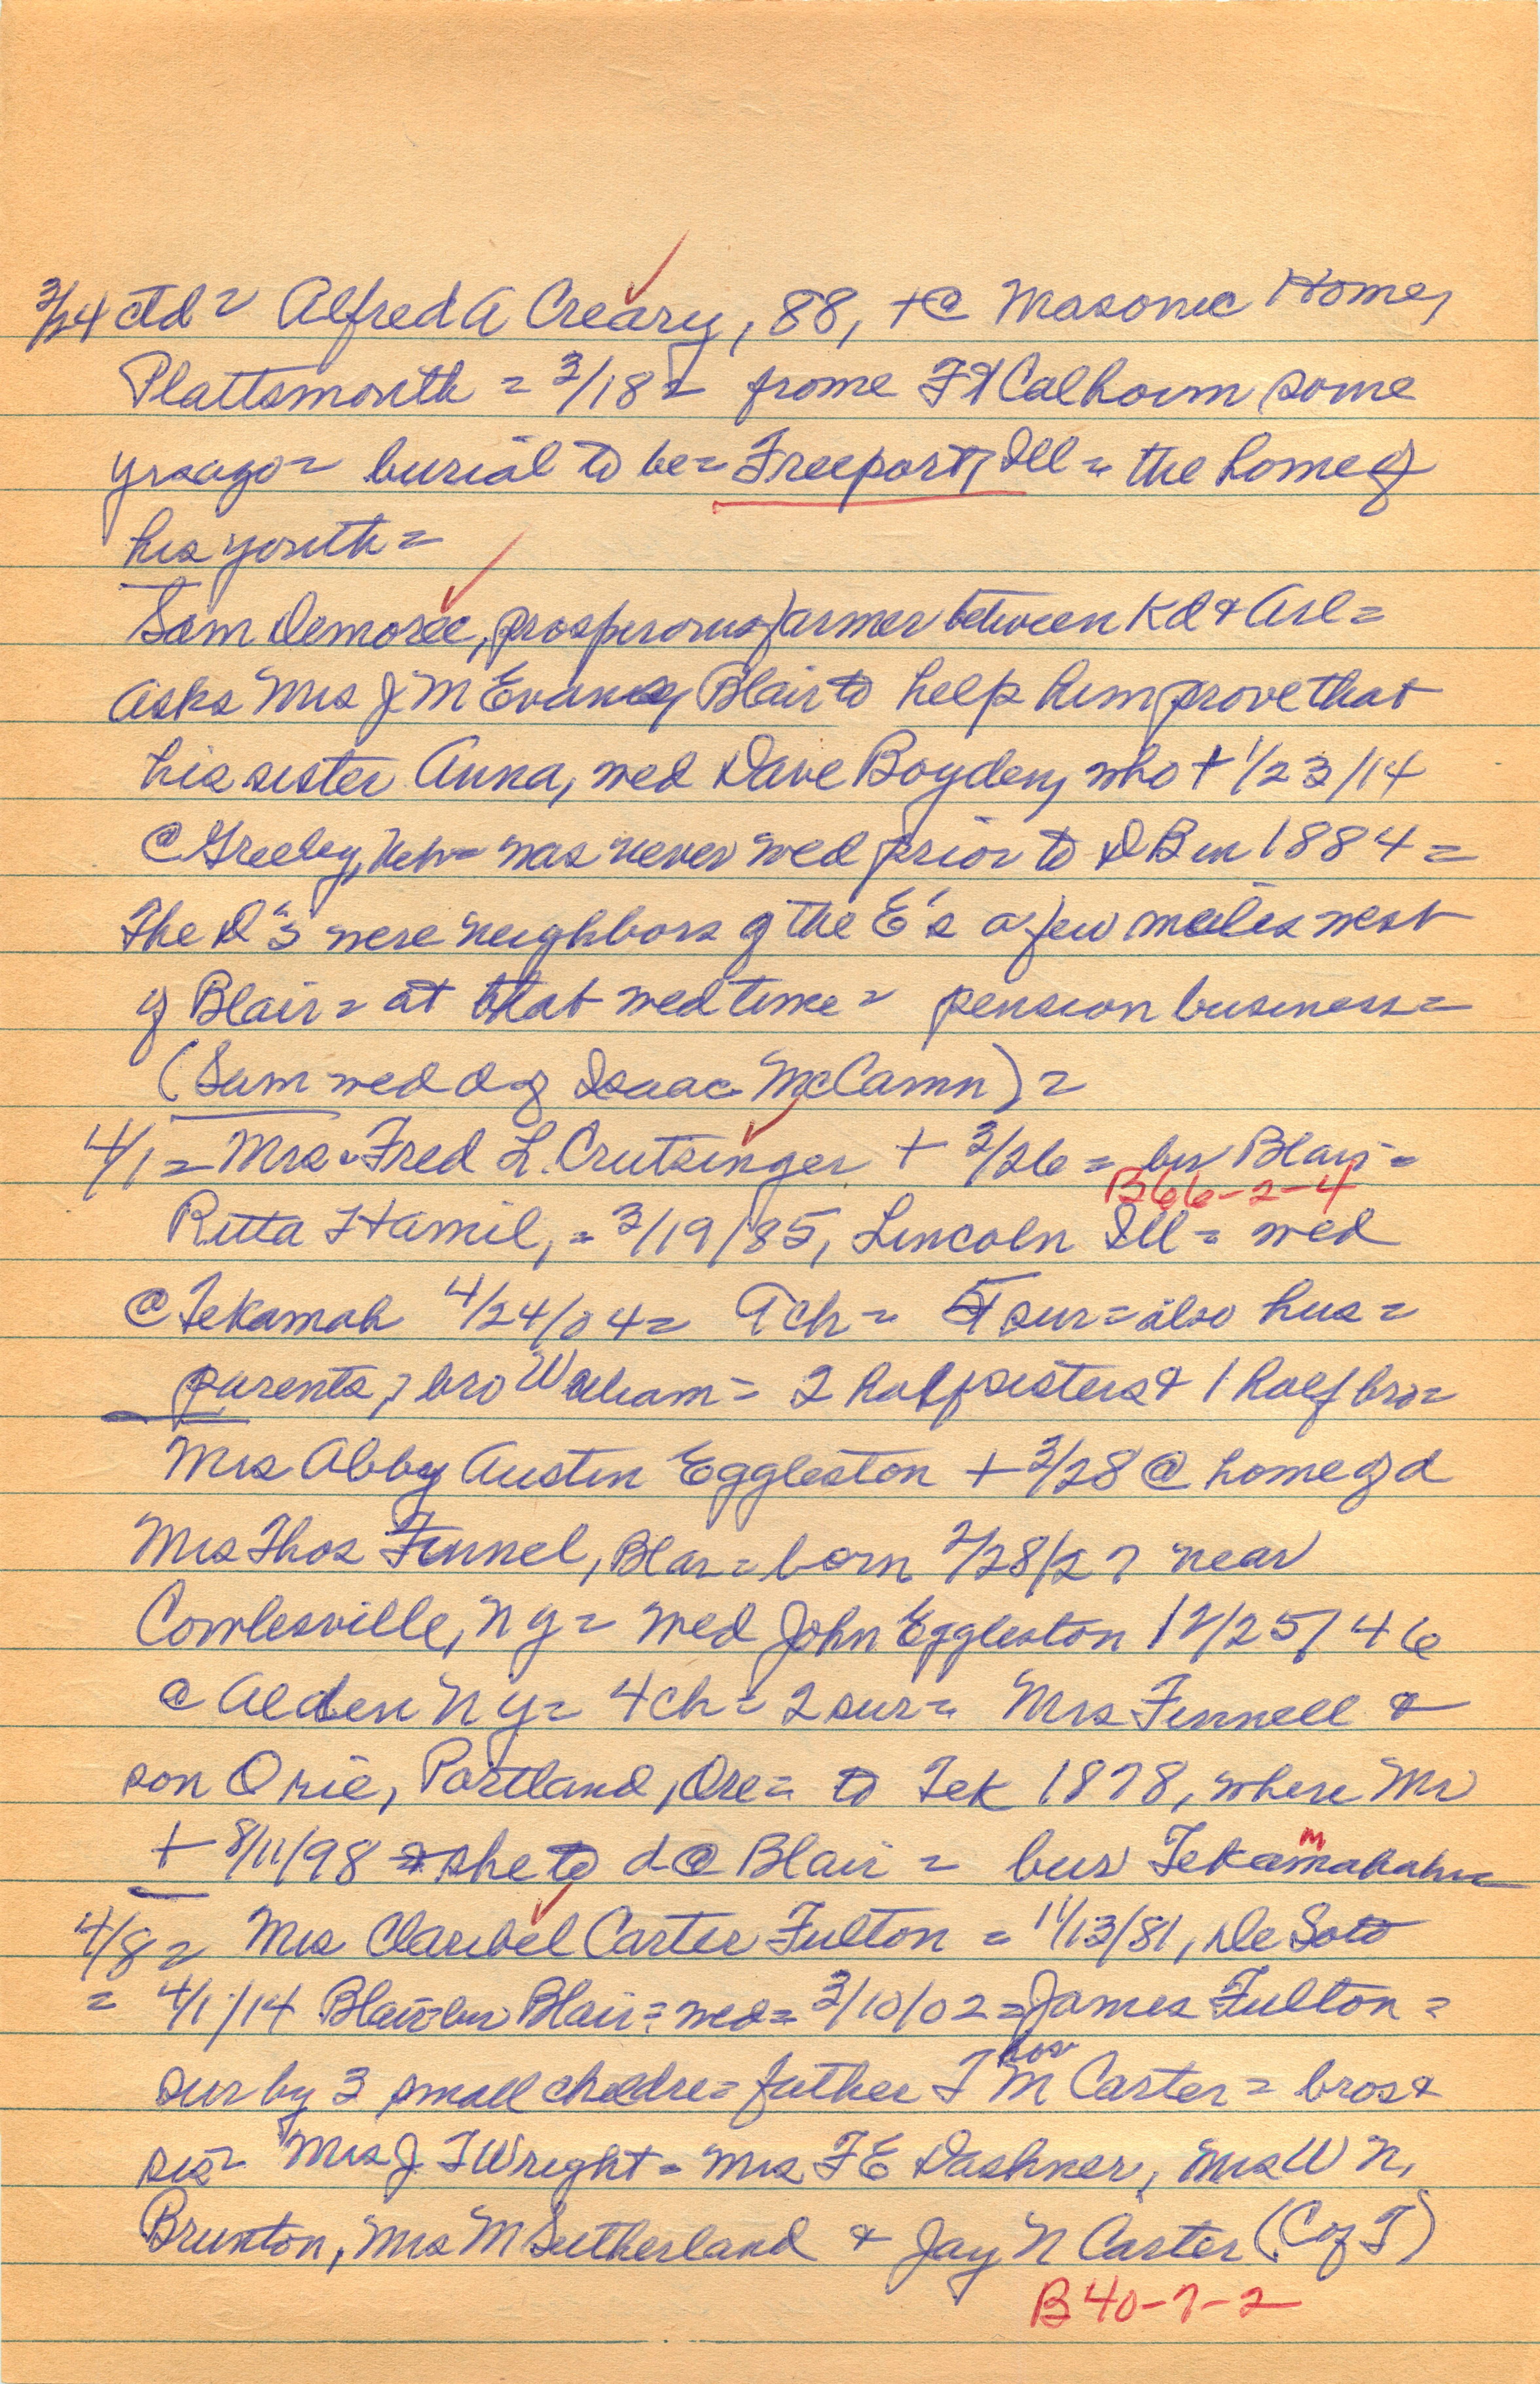 3/24 ctd = Alfred A Creary, 88, + @ Masonic Home,
Plattsmouth = 3/18 = frome Ft Calhoun some
yrs ago = burial to be = Freeport, Ill = the home of
his youth =
Sam Demoree, prosperous farmer between Kd & Arl =
asks Mrs J M Evans, Blair to help him prove that
his sister Anna, wed Dave Boyden, who + 1/23/14
@ Greeley, Neb = was never wed prior to D B in 1884 =
The D's were neighbors of the E's a few miles west
of Blair = at that wed time = pension business =
(Sam wed d of Isaac McCamn) =
4/1 = Mrs Fred L. Crutsinger + 3/26 = bur Blair =
B66-2-4
Ritta Hamil, = 3/19/85, Lincoln Ill = wed
@ Tekamah 4/24/04 = 9 ch = sur = also hus =
parents, bro William = 2 half sisters & 1 half bro =
Mrs Abby Austin Eggleston + 3/28 @ home of d
Mrs Thos Finnel, Blar = born 2/28/27 near
Cowlesville, N Y = wed John Eggleston 12/25/46
@ Alden N Y = 4 ch = 2 sur = Mrs Finnell &
son Orie, Portland, Ore = to Tek 1878, where Mr
+ 8/11/98 she to d @ Blair = bur Tekamah
m
4/8 = Mrs Claribel Carter Fulton = 11/13/81, De Soto
= 4/1/14 Blair = bur Blair = wed = 3/10/02 = James Fulton =
sur by 3 small childre = father Thos M Carter = bros &
sis = Mrs J T Wright = Mrs F E Dashner, Mrs W N,
Brunton, Mrs M Sutherland & Jay N Carter (C of T)
B 40-7-2